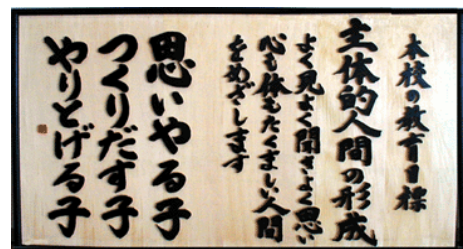 本校の教育目標
主体的人間の形成
よく見よく聞きよく思い
心も体もたくましい人間
をめざします
思いやる子
つくりだす子
やりとげる子